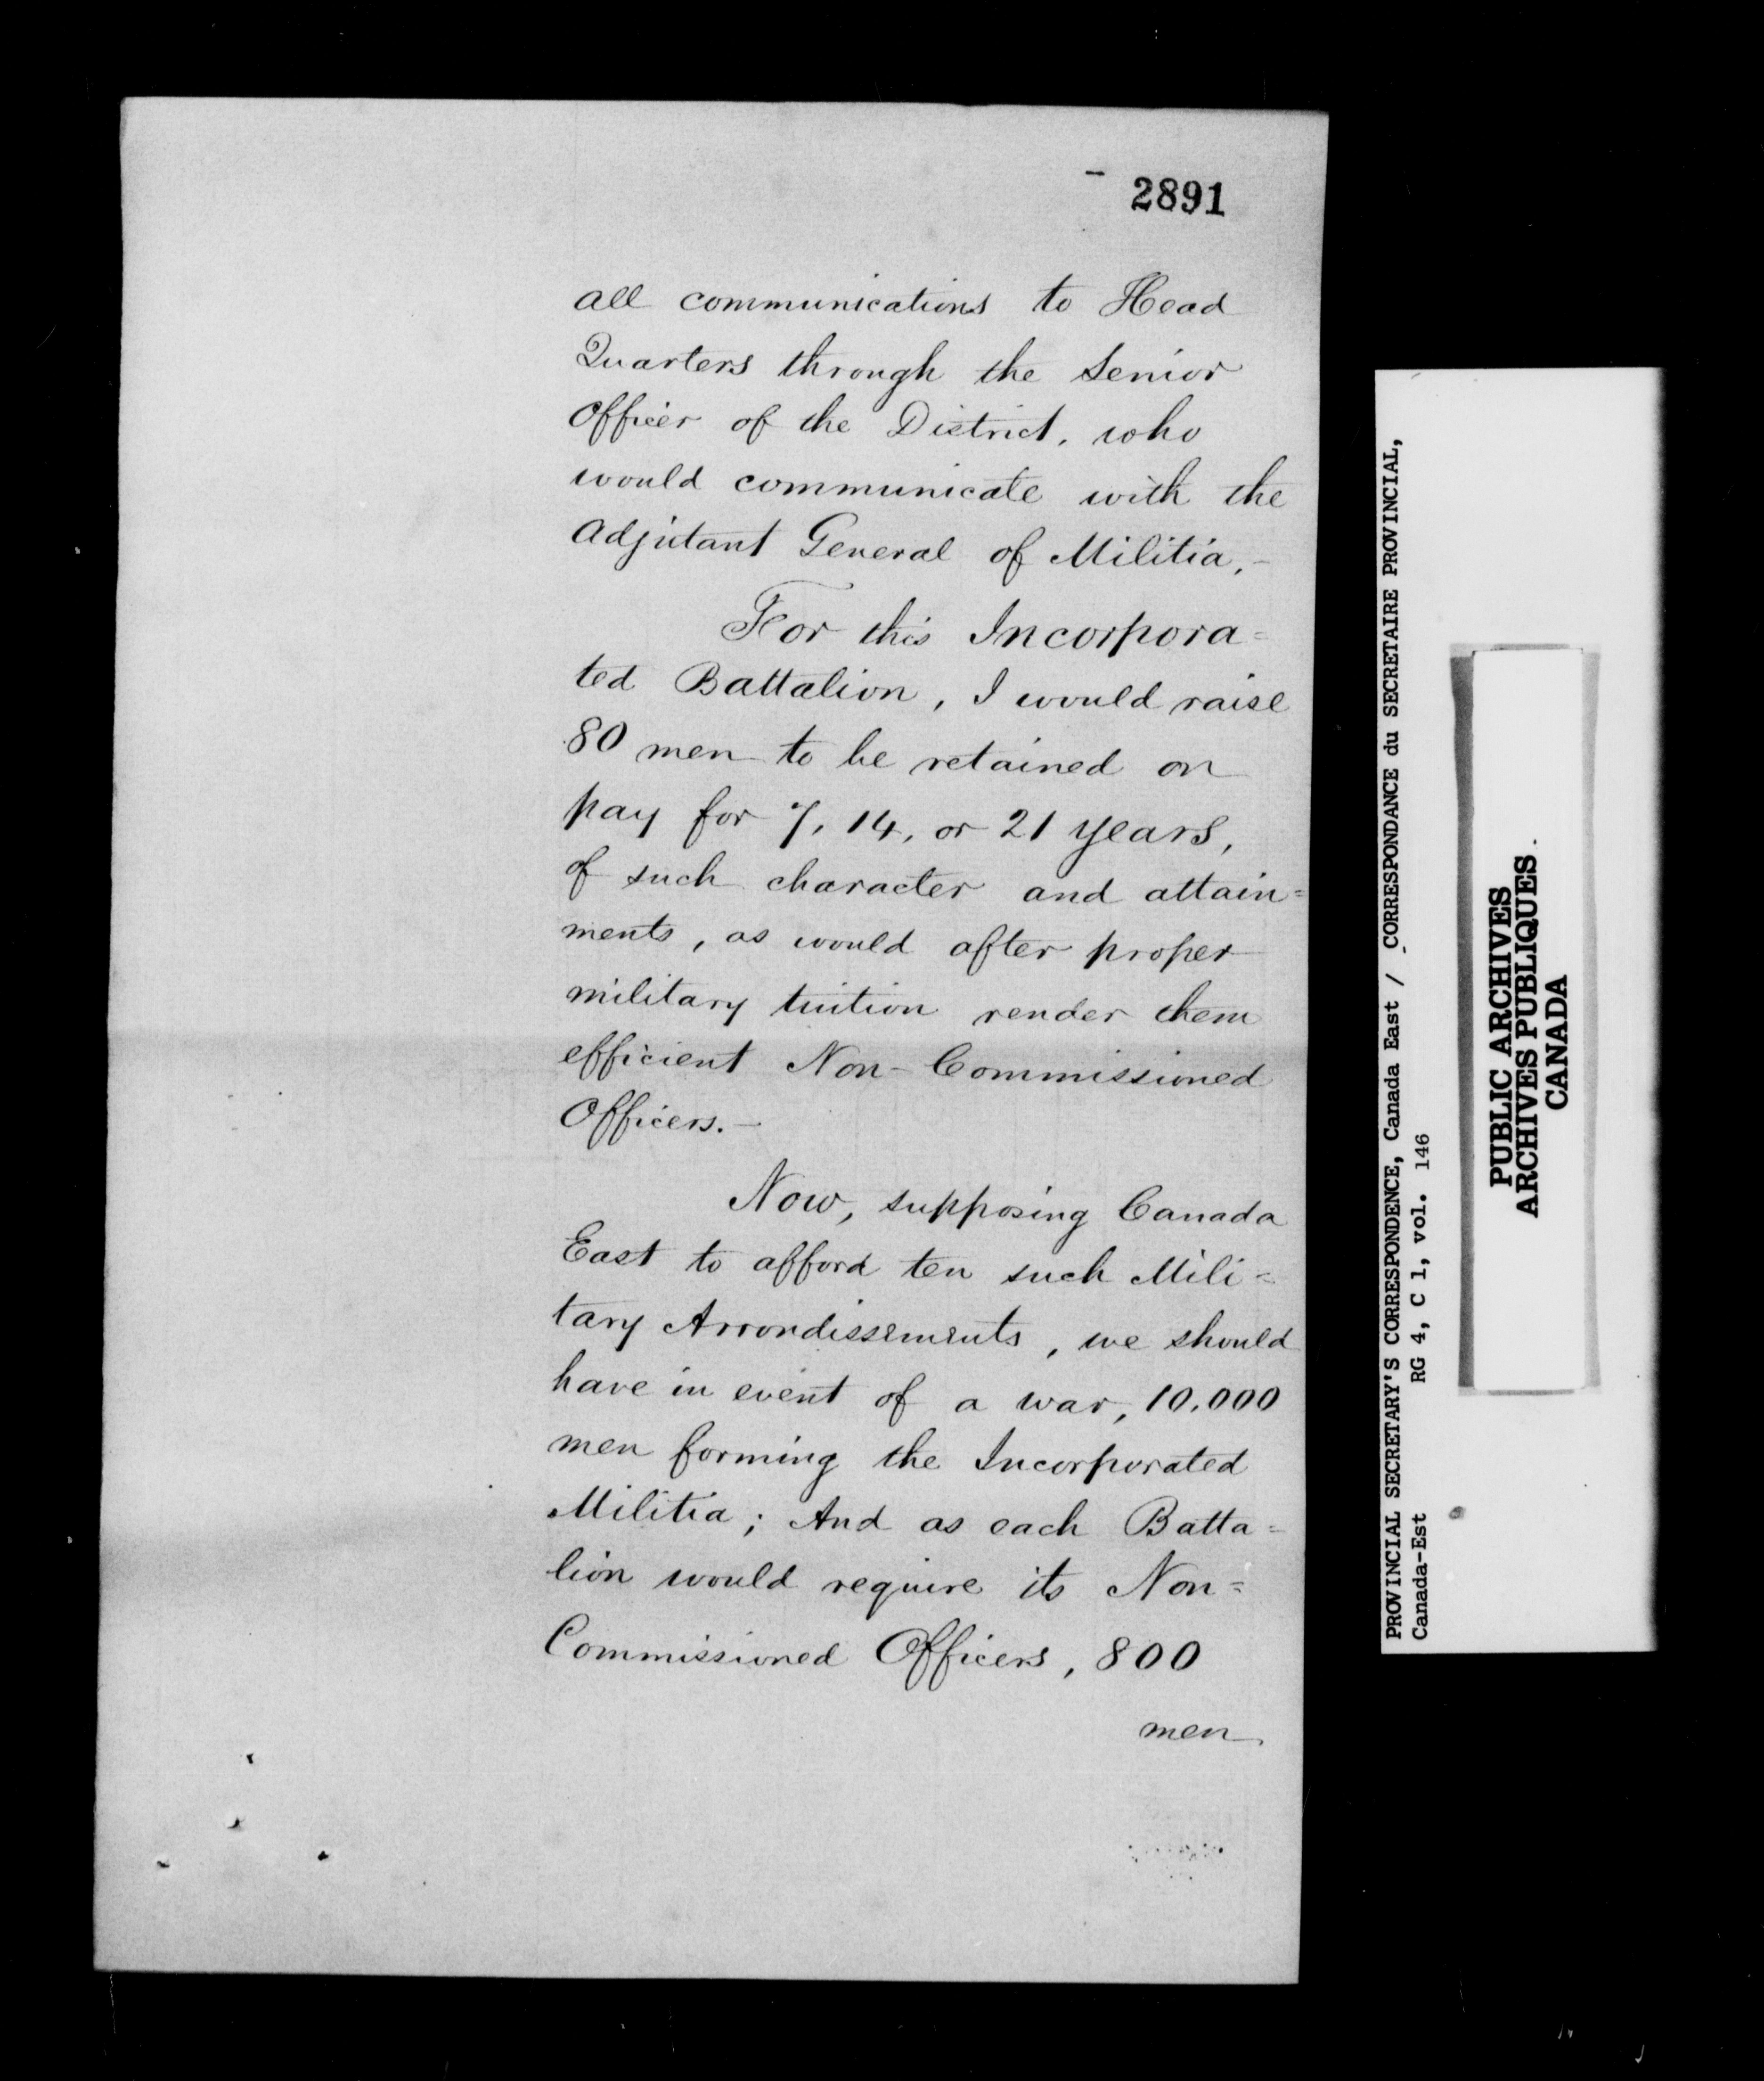 2891
all communications to Head
Quarters through the Senior
Officer of the District, who
would communicate with the
Adjutant General of Militia.-
For this Incorpora=
ted Battalion, I would raise
80 men to be retained on
pay for 7, 14, or 21 years,
of such character and attain=
ments, as would after proper
military tuition render them
efficient Non-Commissioned
Officers.-
Now, supposing Canada
East to afford ten such Mili=
tary Arrondissements, we should
have in event of a war, 10.000
men forming the Incorporated
Militia; And as each Batta=
lion would require its Non=
Commissioned Officers, 800
men
PROVINCIAL SECRETARY'S CORRESPONDENCE, Canada East / CORRESPONDANCE du SECRETAIRE PROVINCIAL,
Canada-Est RG 4, C 1, vol. 146
PUBLIC ARCHIVES
ARCHIVES PUBLIQUES
CANADA